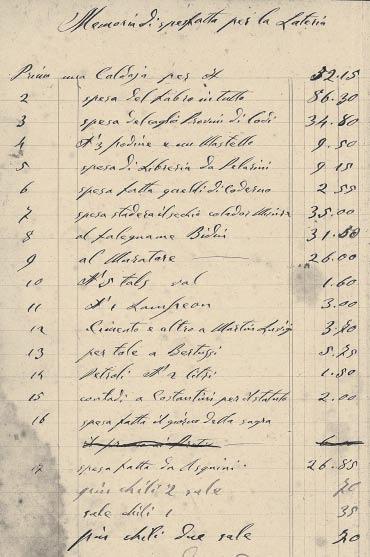 Memoria di spesfatta per la Lateria
Primo una Caldaja per N 32.15
2 spesa del fabro in tutto 86.30
3 spesa del caglio Provini di Lodi 34.80
4 N° 3 podine e un Mastello 9.50
5 spesa di Libreria da Pelarini 9.15
6 spesa fatta quelli di Coderno 2.55
7 spesa stadera il sechio colador Misura 35.00
8 al falegname Bidini 31.50
9 al Muratore 26.00
10 N° 5 tals val 1.60
11 N° 1 Lampeon 3.00
12 Cimento e altro a Martin Luigi 3.70
13 per tole a Bertussi 5.75
14 Petroli N° 2 litri 1.80
15 contadi a Costantini per il statuto 2.00
16 spesa fatta il giorno della sagra
17 spesa fatta da Asquini 26.85
piu chili 2 sale 70
sale chili 1 35
piu chili due sale 70